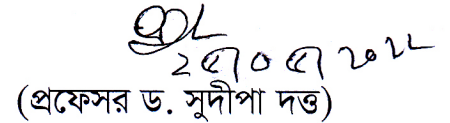 ২৫/০৫/২০২২
(প্রফেসর ড. সুদীপা দত্ত)